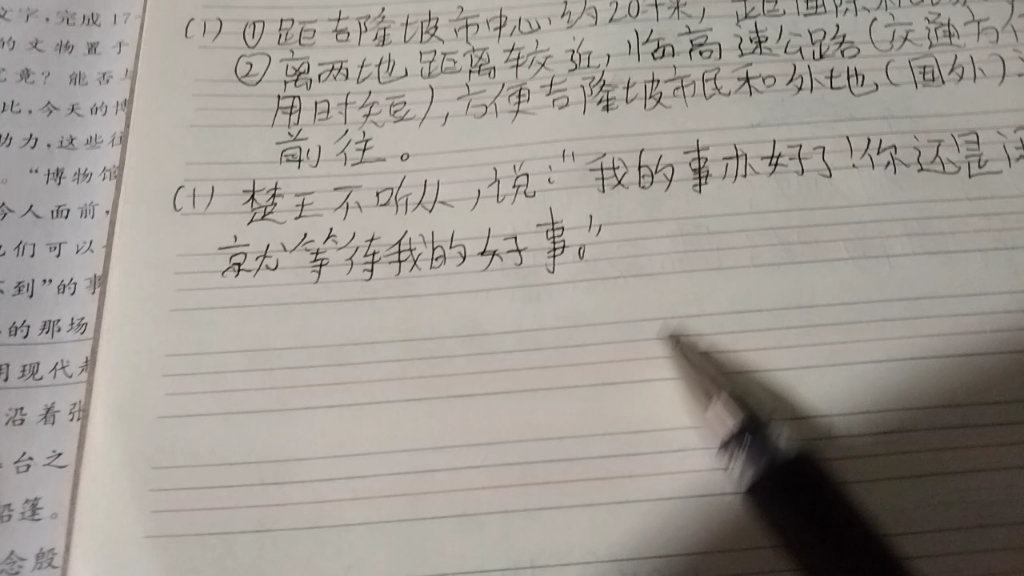 文字,完成17
的文物置于
究竟?能否
比,今天的博
助力,这些往
。“博物馆
今人面前,
们可以
不到”的事
的那场
用现代
沿着张
台之
沿篷。
念殷
(1) ①距吉隆坡市中心约20千米,距国际
②离两地距离较近,临高速公路(交通方
用时短),方便吉隆坡市民和外地(国外)
前往。
(1) 楚王不听从,说:“我的事办好了!你还是
就等待我的好事。”